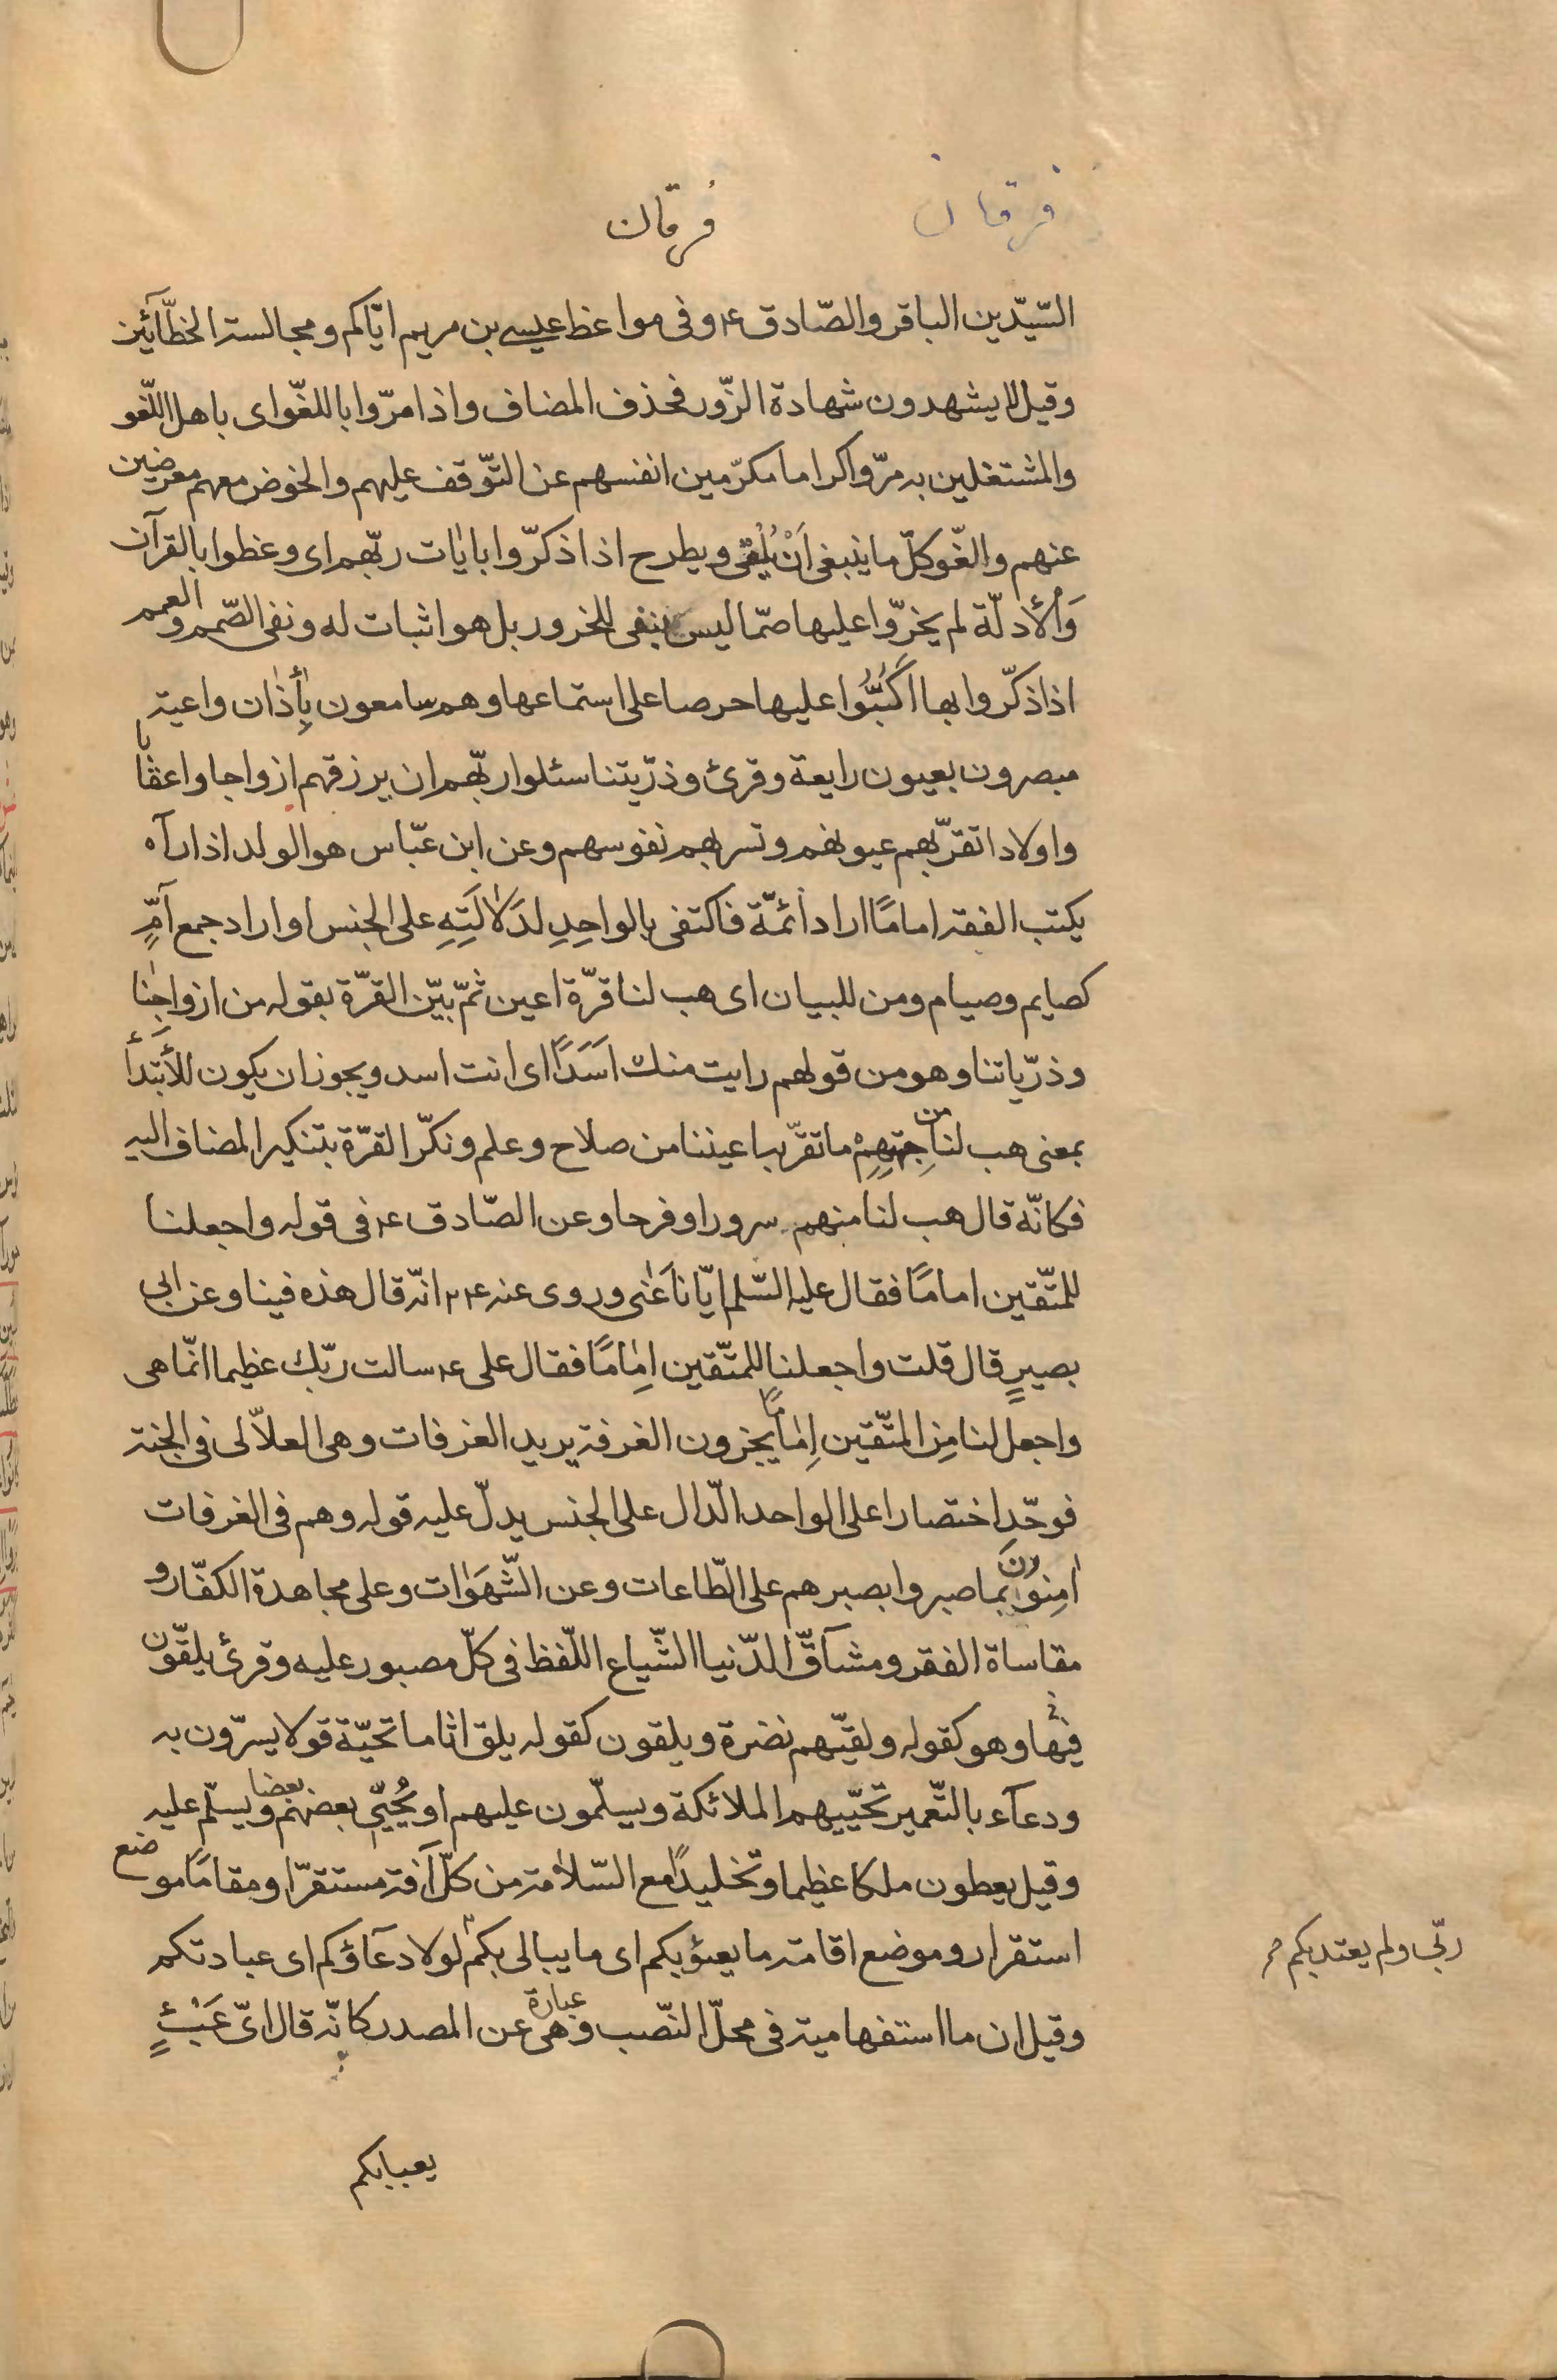 فرقان
فرقان
السّيّدين الباقر والصّادق ع وفى مواعظ عيسى بن مريم ايّاكم ومجالسة الخطّآئين
وقيل لا يشهدون شهادة الزّور فحذف المضاف واذا مرّوا باللغّو اى باهل اللّغو
والمشتغلين به مرّوا كراما مكرّمين انفسهم عن التّوقف عليهم والخوض معهم معرضين
عنهم والغّو كلّ ما ينبغى اَنْ يُلْقى ويطرح اذا ذكرّوا بايٰات ربّهم اى وعظوا بالقرآن
وَالأدلّة لم يخرّوا عليها صمّا ليس بنفى للخرور بل هو اثبات له ونفى الصّمم والعمم
اذا ذكّروا بها اكَبُّوا عليها حرصا على استماعها وهم سامعون بأِذٰان واعية
مبصرون بعيون رايعة وقرئ وذرّيتنا سئلوا ربّهم ان يرزقهم ازواجا واعقابا
واولادا تقرّبهم عيونهم وتسر بهم نفوسهم وعن ابن عبّاس هو الولد اذا رآه
يكتب الفقه امامًا اراد ائمّة فاكتفى بالواحِدِ لدَلاٰلَتِهِ على الجنس او اراد جمع آمٍّ
كصايم وصيام ومن للبيان اى هب لنا قرّة اعين ثمّ بيّن القرّة بقوله من ازواجِنٰا
وذرّياتنا وهو من قولهم رايت منك اَسَدًا اى انت اسد ويجوز ان يكون للأبتَدأَ
بمعنى هب لنا من جِهَتِهِمْ ما تقرّ به اعيننا من صلاح وعلم ونكّر القرّة بتنكير المضاف اليه
فكانّه قال هب لنا منهم سرورا وفرحا وعن الصّادق ع فى قوله واجعلنا
للمتّقين امامًا فقال عليه السّلم ايّانا عَنٰى وروى عنه ع انّه قال هذه فينا وعن ابى
بصيرٍ قال قلت واجعلنا للمتّقين اِمٰامًا فقال على ع سالت ربّك عظيما انّما هى
واجعل لنا مِن المتّقين اِمٰامًا يجزون الغرفة يريد الغرفات وهى العلاّلى فى الجنة
فوحّد اختصارا على الواحد الدّال على الجنس يدلّ عليه قوله وهم فى الغرفات
اٰمِنوُنَ بما صبروا بصبرهم على الطّاعات وعن الشّهَوٰات وعلى مجاهدة الكفّار و
مقاساة الفقر ومشآقّ الدّنيا الشّياع اللّفظ فى كلّ مصبور عليه وقرئ يلقّون
فيهٰا وهو كقوله ولقيّهم نضرة ويلقون كقوله يلق اثاما تحيّة قولا يسرّون به
ودعآء بالتّعمير تحيّيهم الملائكة ويسلّمون عليهم او يُحيّي بعضهم بعضا ويسلّم عليه
وقيل يعطون ملكا عظيما وتخليدًا مع السّلاٰمة من كلّ آفة مستقرّا ومقامًا موضع
استقرار وموضع اقامة ما يعبؤ بكم اى ما يبالى بكم لولا دعآؤكم اى عبادتكم
ربّى ولم يعتد بكم
وقيل ان ما استفهامية فى محلّ النّصب وهى عبارة عن المصدر كانّه قال اىّ عَبْئٍ
يعبا بكم